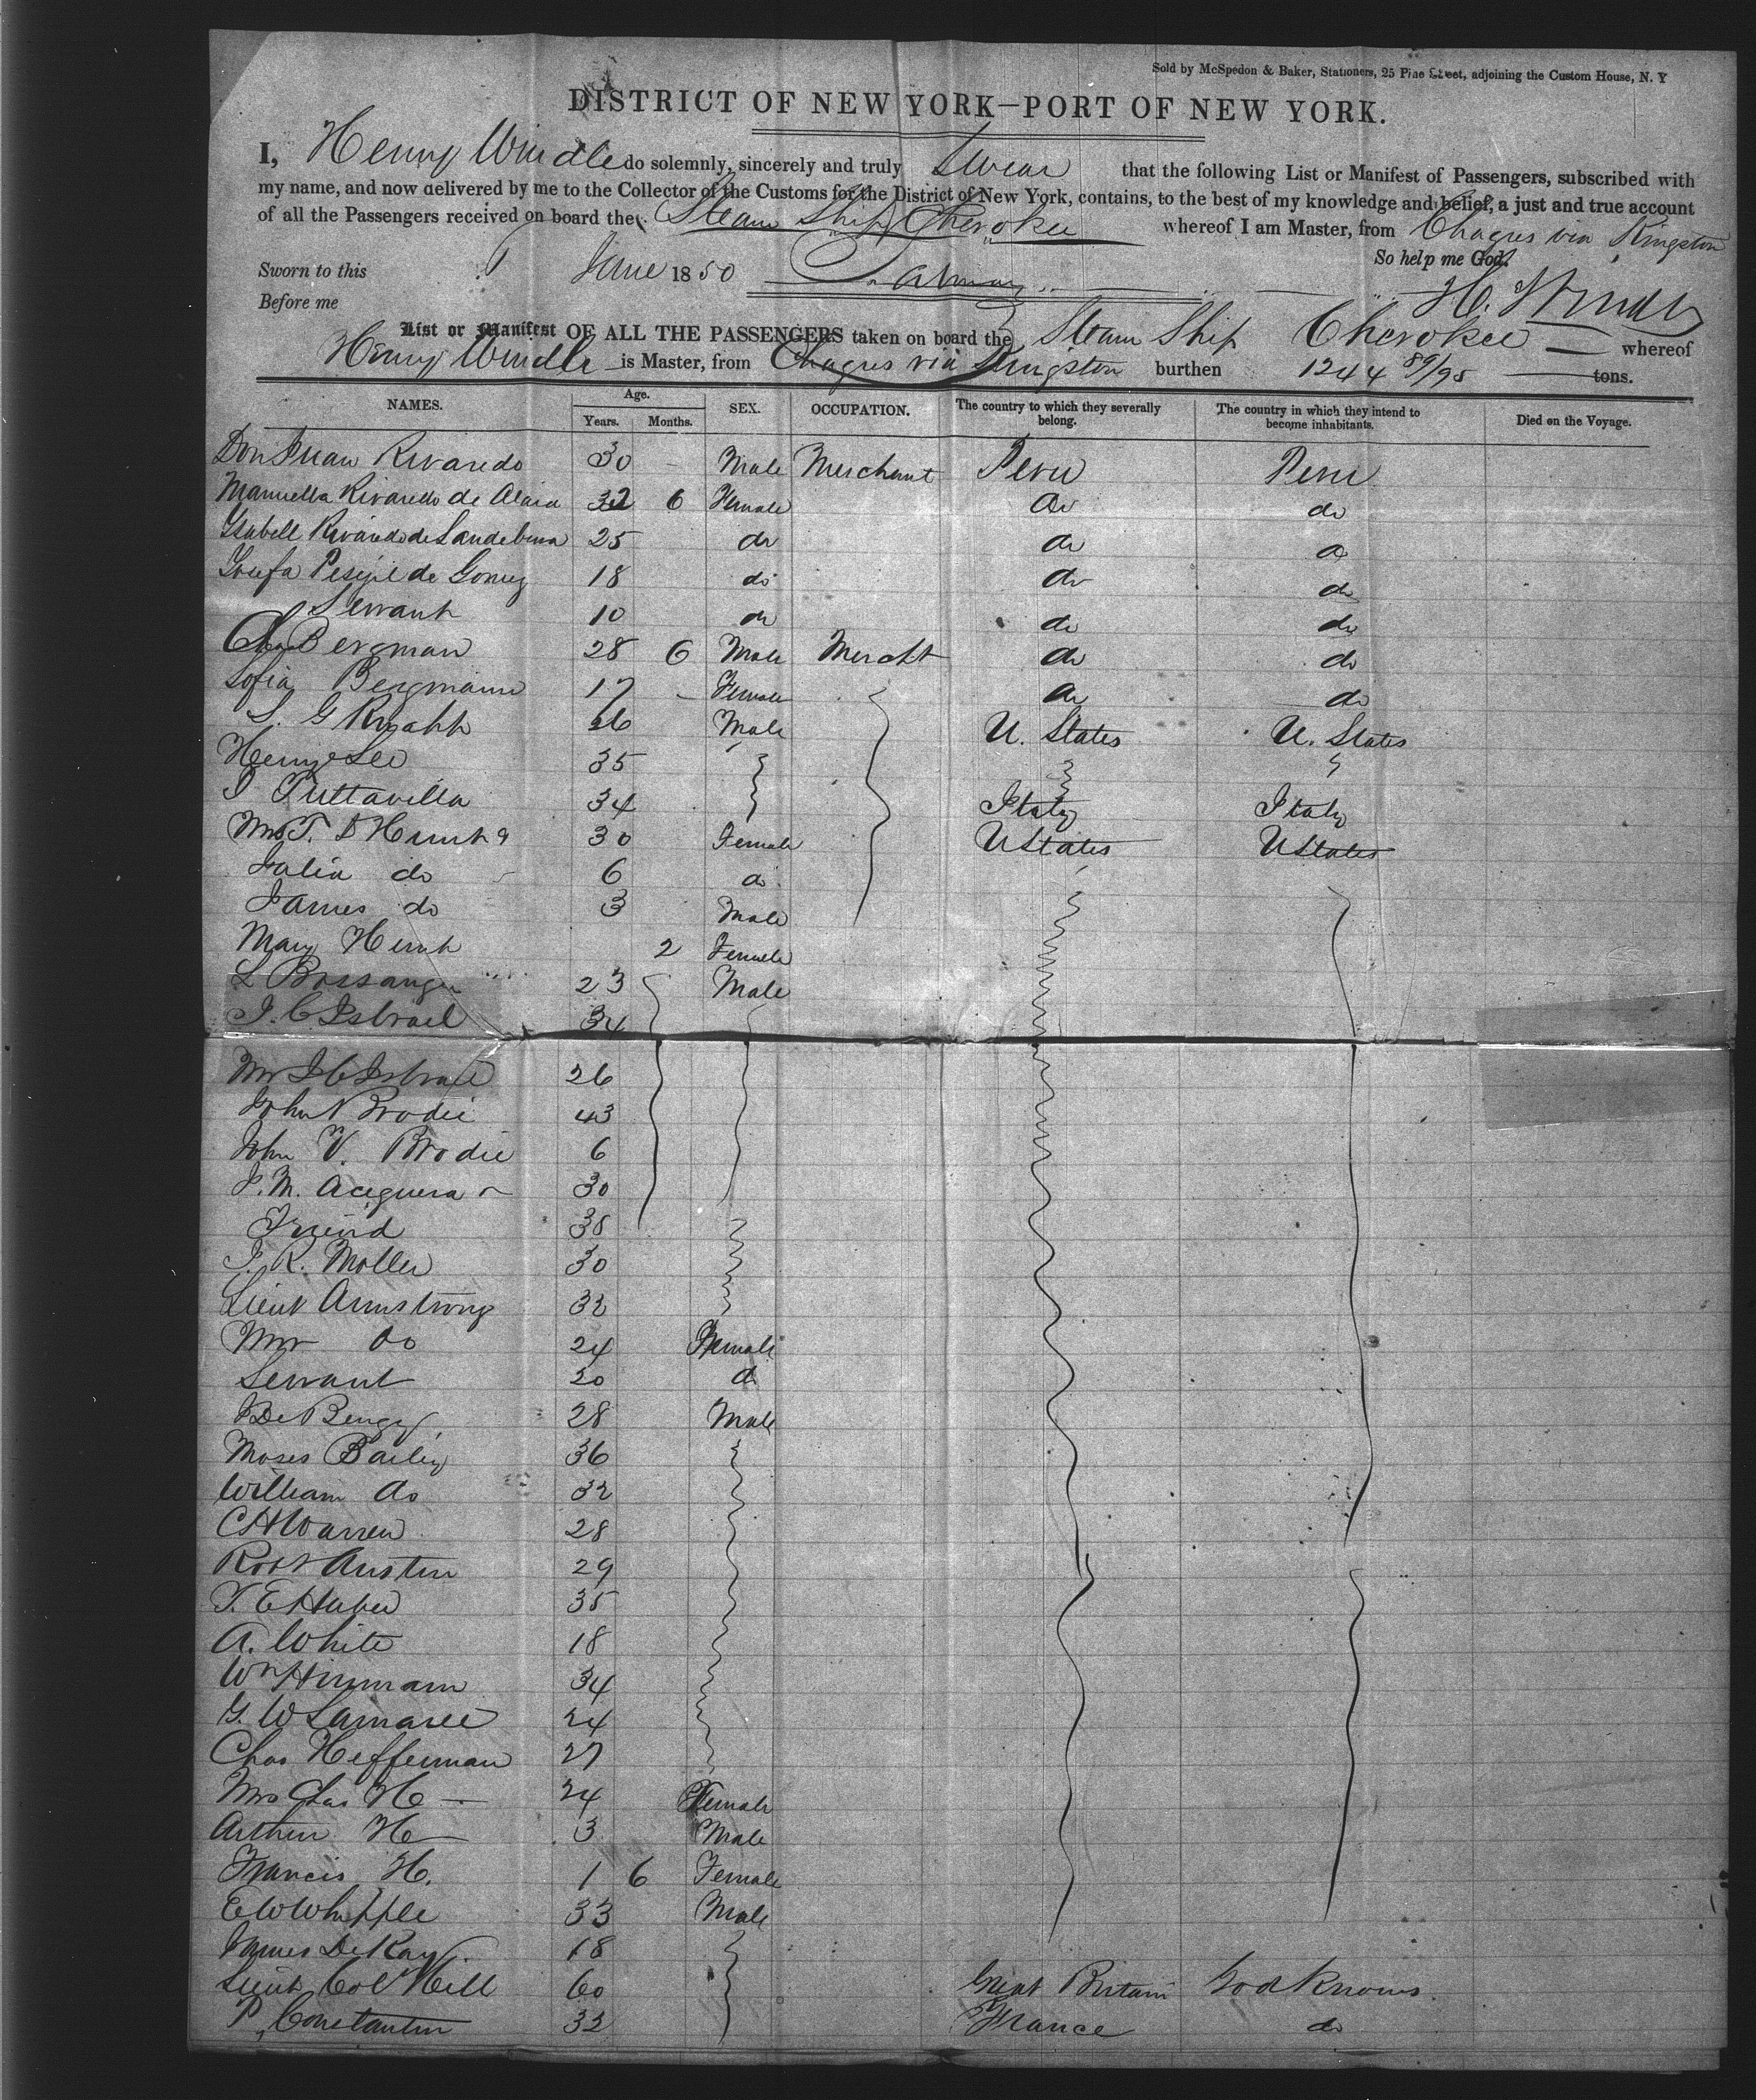 Sold by McSpedon & Baker, Stationers, 25 Pine Street, adjoining the Custom House, N. Y
DISTRICT OF NEW YORK—PORT OF NEW YORK.
I, Henry Windle do solemnly, sincerely and truly Swear that the following List or Manifest of Passengers, subscribed with
my name, and now delivered by me to the Collector of the Customs for the District of New York, contains, to the best of my knowledge and belief, a just and true account
of all the Passengers received on board the Steam Ship Cherokee whereof I am Master, from Chagres via Kingston
So help me God.
Sworn to this June 1850
H. Windle
Before me
List or Manifest OF ALL THE PASSENGERS taken on board the Steam Ship Cherokee whereof
Henry Windle is Master, from Chagres via Kingston burthen 1244 89/95 tons.
NAMES. Age. Years. Months. SEX. OCCUPATION. The country to which they severally belong. The country in which they intend to become inhabitants. Died on the Voyage.
Don Juan Rivaredo 30 - Male Merchant Peru Peru
Manuella Rivaredo de 32 6 Female do do
Ysabell Rivaredo de 25 do do do
Josefa de Gomez 18 do do do
Servant 10 do do do
Bergman 28 6 Male Mercht do do
Sofia Bergmann 17 - Female do do
S. G 26 Male U. States U. States
Henry Lee 35
Tuttavilla 34 Italy Italy
Mrs T. D Hunt & 30 Female U States U States
Julia do 6 do
James do 3 Male
Mary Hunt 2 Female
L Bossange 23 Male
J. C Isbrael 34
Mrs J C Isbrael 26
John N Brodie 43
John V. Brodie 6
J. M. Aceguera 30
Friend 38
J. R. Moller 30
Lieut Armstrong 32
Mrs do 24 Female
Servant 20 do
De 28 Male
Moses Bailey 36
William do 32
C H Warren 28
Robt Austin 29
T. E 35
A. White 18
Wm Hinmam 34
G. W Lamaree 24
Chas Hefferman 27
Mrs Chas H — 24 Female
Arthur H — 3 Male
Francis H. 1 6 Female
E W Whipple 33 Male
James De Kay 18
Lieut Col Hill 60 Great Britain God Knows.
P. Constantin 32 France do